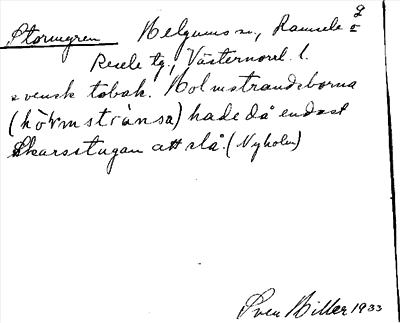 Stormyren Helgums sn, Ramsele o
Resele tg, Västernorrl. l.
svensk tobak. Holmstrandsborna
(hövmstránsa) hade då endast
Skarsstugan att slå. (Nyholm)
Sven Hiller 1933